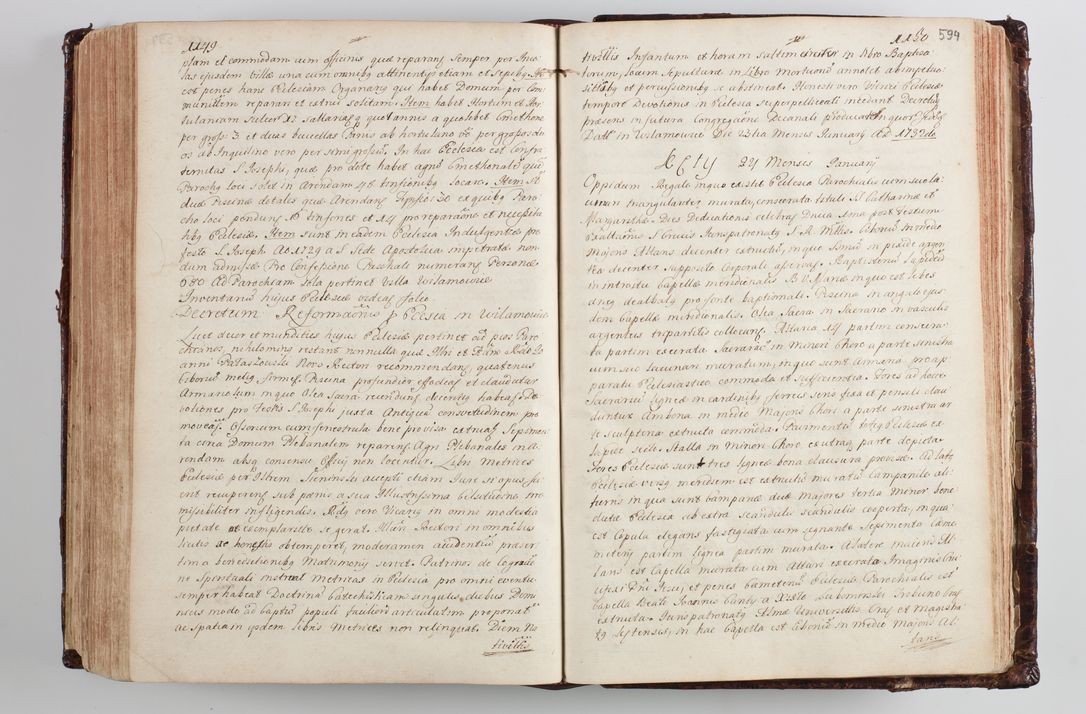 1149
plam et commodam cum officinis quæ reparanr semper per Inco-
las ejusdem villæ una cum omnibq attinentijs etiam et sepibq. Ite
est penes hanc Ecclesiam Organarq qui habet Domum per Com-
munitatem reparari et extrui solitam. Item habet Hortum et Hor-
tulaniam
per gross: 3. et duas bucellas Panis ab hortulano vo per grossos du
os ad Inquilino vero per semigrossum. In hac Ecclesia est Confra
ternitas S. Josephi, quæ pro dote habet agru Cmethonale que
Parochq loci solet in Arendam 48 tinfonibq locare. Item st
duæ Piscinæ dotales quæ Arendanr tynf: 30 ex quibq Paro-
cho loci pendunr 16 tinfones et 14 pro reparaone et necessita
tibq Ecclesiæ. Item sunt in eadem Ecclesia Indulgentiæ pro
festo S. Joseph Ao 1729 a S. Sede Apostolica impetratæ non-
dum admissæ. Pro Confessione Paschali numeranr Personæ
680. Ad Parochiam sola pertinet Villa Wilamowice
Inventarium hujus Ecclesiæ videas folio
Decretum Reformaonis p Eclesia in Wilamowice
Licet decor et mundities hujus Ecclesiæ pertinet ad piss Paro
chianos, nihilominq restant nonnulla quæ Illris et Rdus Dnus Jo
anni Pataszowski Novo Rectori recommendanr, quatenus
Ciborium meliq formet. Piscina profundior effodiatr et claudatur
Armariolum in quo Olea Sacra reconduntr decentiq habeatr. De-
votiones pro festo S. Josephi juxta Antiquam consvetudinem pro
moveat. Ossorium cum fenestrula bene provisa extruat. Sepimen-
ta circa Domum Plebanalem reparentr. Agri Plebanales in A-
rendam absq consensu Officij non locentur. Libri Metrices
Ecclesiæ per Illrem Sienienski accepti etiam Iure si opus fu
erit recuperentr sub pænis a sua Illustrissima Celsitudine irre
missibiliter infligendis. Rdq vero Vicariq in omni modestia
pietate et exemplaritate se gerat. Illmi Rectori in omnibus
licitis ac honestis obtemperet, moderamen audientium præser
tim a benedictionibq Matrimonij servet. Patrinos de Cognaio
ne Spirituali instruat metricas in Ecclesia pro omni eventu
semper habeat Doctrinam Catechisticam singulis diebus Domi
nicis modo ad captum populi faciliori articulatim proponat
ac spatia in ipsdem libris Metrices non relinquat. Diem Na
tivittis

1150
594
tivittis Infantum et horam saltem circiter in libro Baptisa
torum, locum sepulturæ in Libro Mortuoru annotet ab impetuo-
sitatibq et percussionibq se abstineat. Honesti vero Vitrici Ecclesiæ
tempore Devotionis in Ecclesia superpelliceati incedant. Decretuq
præsens in futura Congregaone Decanali producatr in quor fidem
Datt in Wilamowice Die 23tia Mensis Januarij AD 1732do
KĘTY 24 Mensis Januarij
Oppidum Regale in quo existit Ecclesia Parochialis cum suo la-
cunar triangulariter murata, consecrata tituli SS. Catharinæ et
Margarithæ. Dies Dedicationis celebratr Dnica Ima post Festum
Exaltaonis S. Crucis Juris patronatq S. R. Mttis. Ciboriu in medio
Majoris Altaris decenter extructu, in quo Ssmu in pixide argen
tea decenter, supposito corporali asservatr. Baptisteriu lapideu
in introitu Capellæ meridionalis B. V. Mariæ in quo est lebes
æneq dealbatq pro fonte baptismali. Piscina in angulo ejus-
dem Capellæ meridionalis. Olea Sacra in Sacrario in vasculis
argenteis tripartitis collecantr. Altaria 14 partim consecra-
ta partim execrata. Sacrariu in minori Choro a parte sinistra
cum suo lacunari muratum, in quo sunt armaria pro ap-
paratu Ecclesiastico commoda et sufficientia. Fores ad hocce
Sacrariu ligneæ in cardinibq ferreis seris fixa et pensili clau
duntur. Ambona in medio Majoris Chori a parte sinistra ar
te sculptoria extructa commoda. Pavimentu totiq Ecclesiæ ex
lapide secti. Stalla in minori Choro ex utraq parte depicta.
Fores Ecclesiæ sunt tres ligneæ bona clausura provisæ. Ad latq
Ecclesiæ versq meridiem est extructu muratu campanile al-
turris in qua sunt campanæ duæ majores tertia minor bene
ductæ. Ecclesia ab extra scandulis scandulis cooperta, in qua
est Cupula elegans fastigiata cum signante. Sepimenta Cæme
meterij partim lignea partim murata. A latere majoris Al-
taris est Capella murata cum Altari execrata Imaginis Cru-
cifixi Dni Jesu, et penes Cæmeteriu Ecclesiæ Parochialis est
capella Beati Joannis Cantij a Xisto Lubomirski Tribuno Crac
extructa. Juris patronatq Almæ Universittis Crac et Magistra
tq Kętensis, in hac Capella est Ciboriu in medio Majoris Al
taris